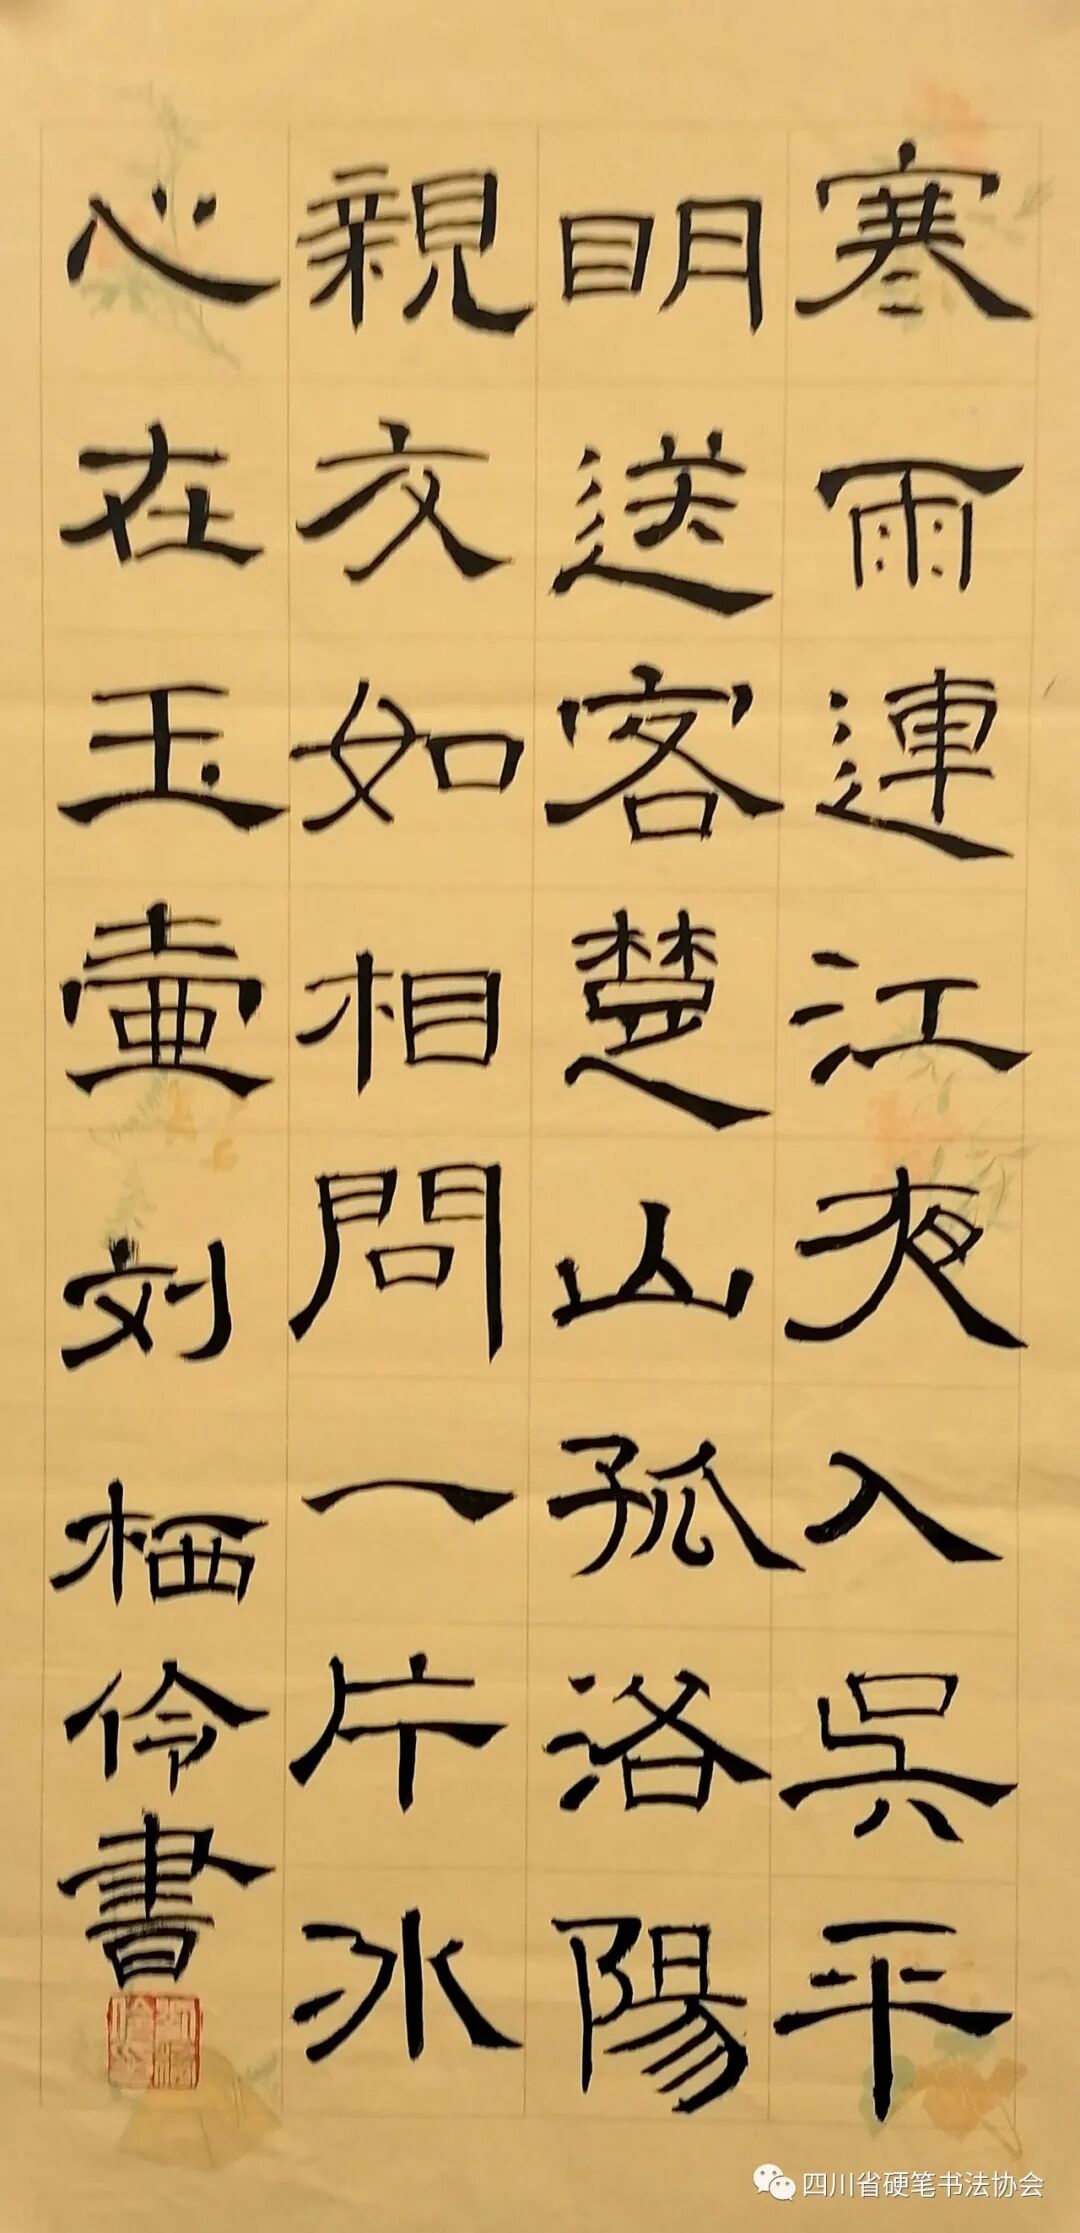 寒雨連江夜入吳平
明送客楚山孤洛陽
親友如相問一片冰
心在玉壺刘栖伶書
四川省硬笔书法协会